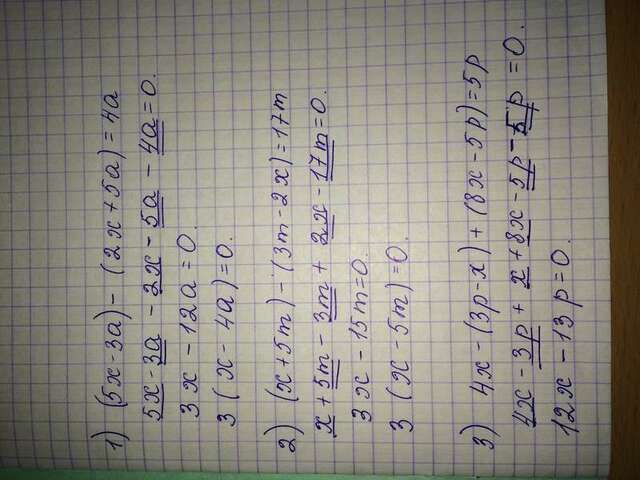 1) (5x-3a)-(2x+5a)=4a
5x-3a-2x-5a-4a=0.
3x-12a=0.
3(x-4a)=0.
2) (x+5m)-(3m-2x)=17m
x+5m-3m+2x-17m=0.
3x-15m=0.
3(x-5m)=0.
3) 4x-(3p-x)+(8x-5p)=5p
4x-3p+x+8x-5p-5p=0.
12x-13p=0.